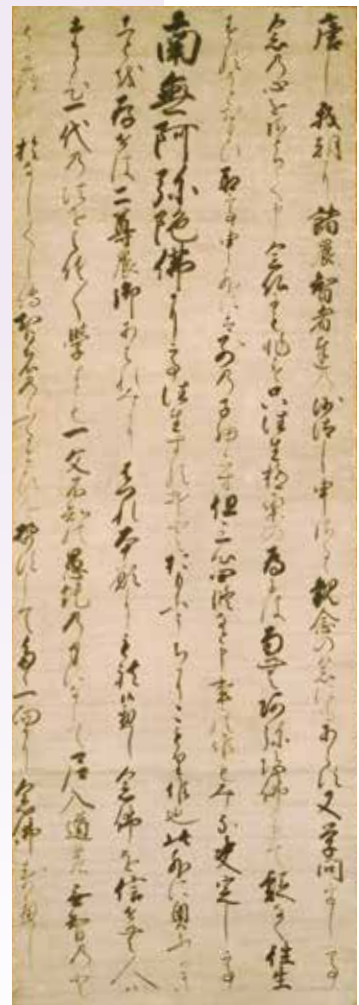 唐し我朝に諸農智者達の沙汰し申さるゝ観念の念にもあらす又学問をして
念の心をさとりて申念仏にも往生極楽の為には南無阿弥陀佛と申て疑なく往生
取て申外には別の子細候はす但三心四修なと申事の候はみな决定して
南無阿弥陀佛にて往生するそとおもふうちにこもり候也此外に奥ふかき
事を存せは二尊農御あはれみにはつれ本願にもれ候へし念佛を信せむ人は
たとひ一代の法を能々学すとも一文不知の愚鈍の身になして尼入道の無智の
於なしくして智者のふるまひをせすして多ゝ一向に念佛すへし